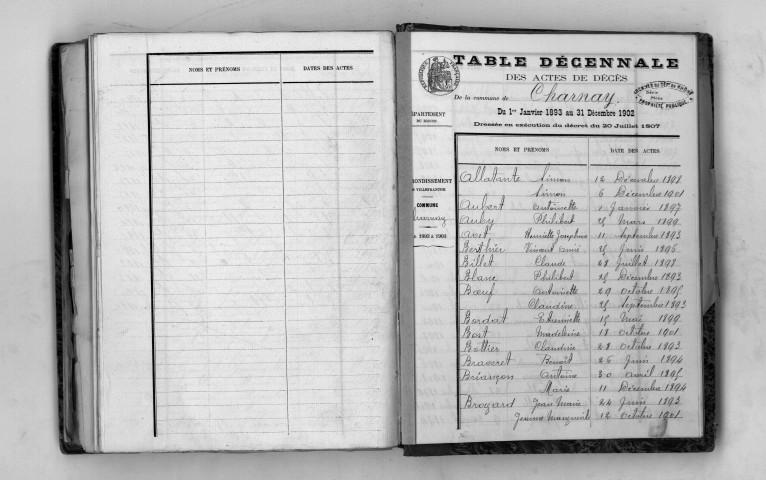 NOMS ET PRÉNOMS DATES DES ACTES
TABLE DÉCENNALE
DES ACTES DE DÉCÈS
De la commune de Charnay.
Du 1er Janvier 1893 au 31 Décembre 1902
Dressée en exécution du décret du 20 Juillet 1907
PROPRIÉTÉ PUBLIQUE
DÉPARTEMENT
DU RHONE
ARRONDISSEMENT
DE VILLEFRANCHE
COMMUNE
NOMS ET PRÉNOMS DATE DES ACTES
Allatante Simon 12 Décembre 1898
Simon 6 Décembre 1901
Aubert Antoinette Janvier 1897
Auby Philibert 25 Mars 1899
Avet Henriette Joséphine 11 Septembre 1893
Berthier Vincent Aimé 25 Juin 1896
Billet Claude 28 Juillet 1898
Blanc Philibert 25 Décembre 1893
Bœuf Antoinette 29 Octobre 1895
Claudine 25 Septembre 1893
Bordat Etiennette 15 Mai 1899
Bost Madeleine 18 Octobre 1901
Bottier Claudine 28 Octobre 1893
Braveret Benoit 26 Juin 1894
Briançon Antoine 30 Avril 1895
Marie 11 Décembre 1894
Broyard Jean Marie 24 Juin 1893
Jeanne 12 Octobre 1901